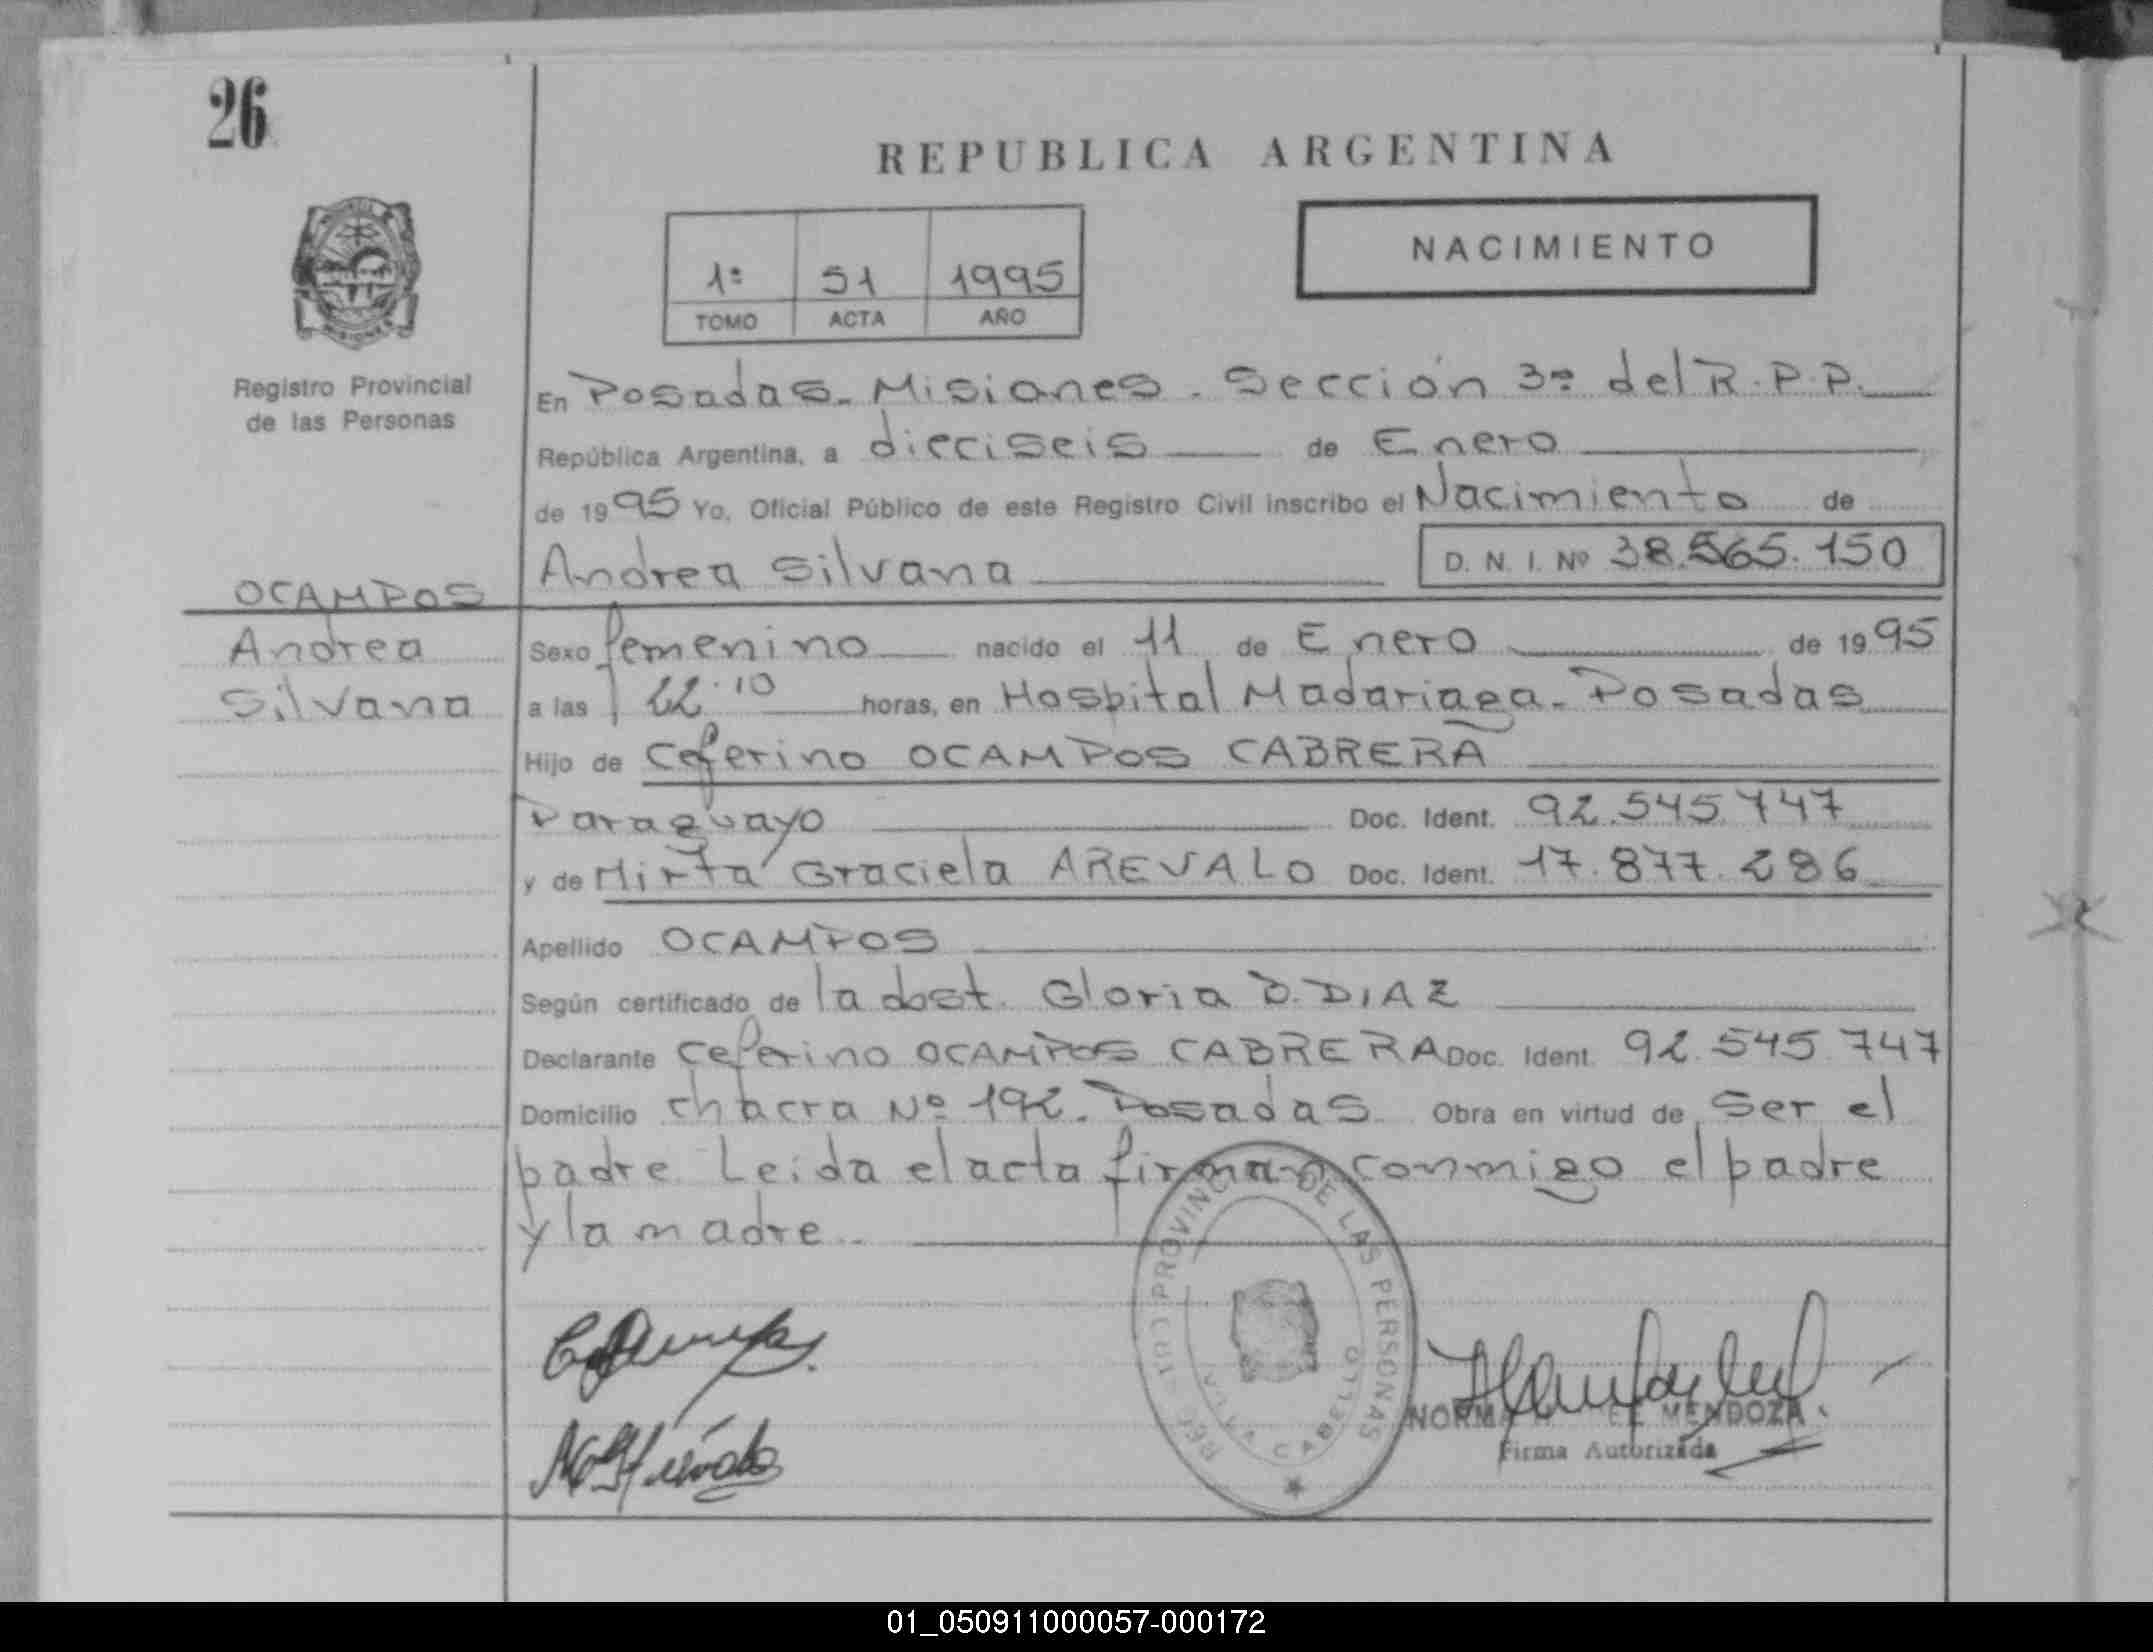 26
REPUBLICA ARGENTINA
NACIMIENTO
1º 51 1995
TOMO ACTA AÑO
Registro Provincial
de las Personas
En Posadas - Misiones - Sección 3ª del R.P.P.
República Argentina, a dieciseis de Enero
de 1995 Yo, Oficial Público de este Registro Civil inscribo el Nacimiento de
Andrea Silvana D. N. I. Nº 38.565.150
OCAMPOS
Andrea
Silvana
Sexo femenino nacido el 11 de Enero de 1995
a las 22.10 horas, en Hospital Madariaga - Posadas
Hijo de Ceferino OCAMPOS CABRERA
Paraguayo Doc. Ident. 92.545.747
y de Mirta Graciela AREVALO Doc. Ident. 17.877.286
Apellido OCAMPOS
Según certificado de la obst. Gloria D. DIAZ
Declarante Ceferino OCAMPOS CABRERA Doc. Ident. 92.545.747
Domicilio chacra Nº 192 - Posadas Obra en virtud de Ser el
padre Leida el acta firman conmigo el padre
y la madre
PROVINCIAL DE LAS PERSONAS
CABELLO
NORMA MENDOZA
Firma Autorizada
01_050911000057-000172